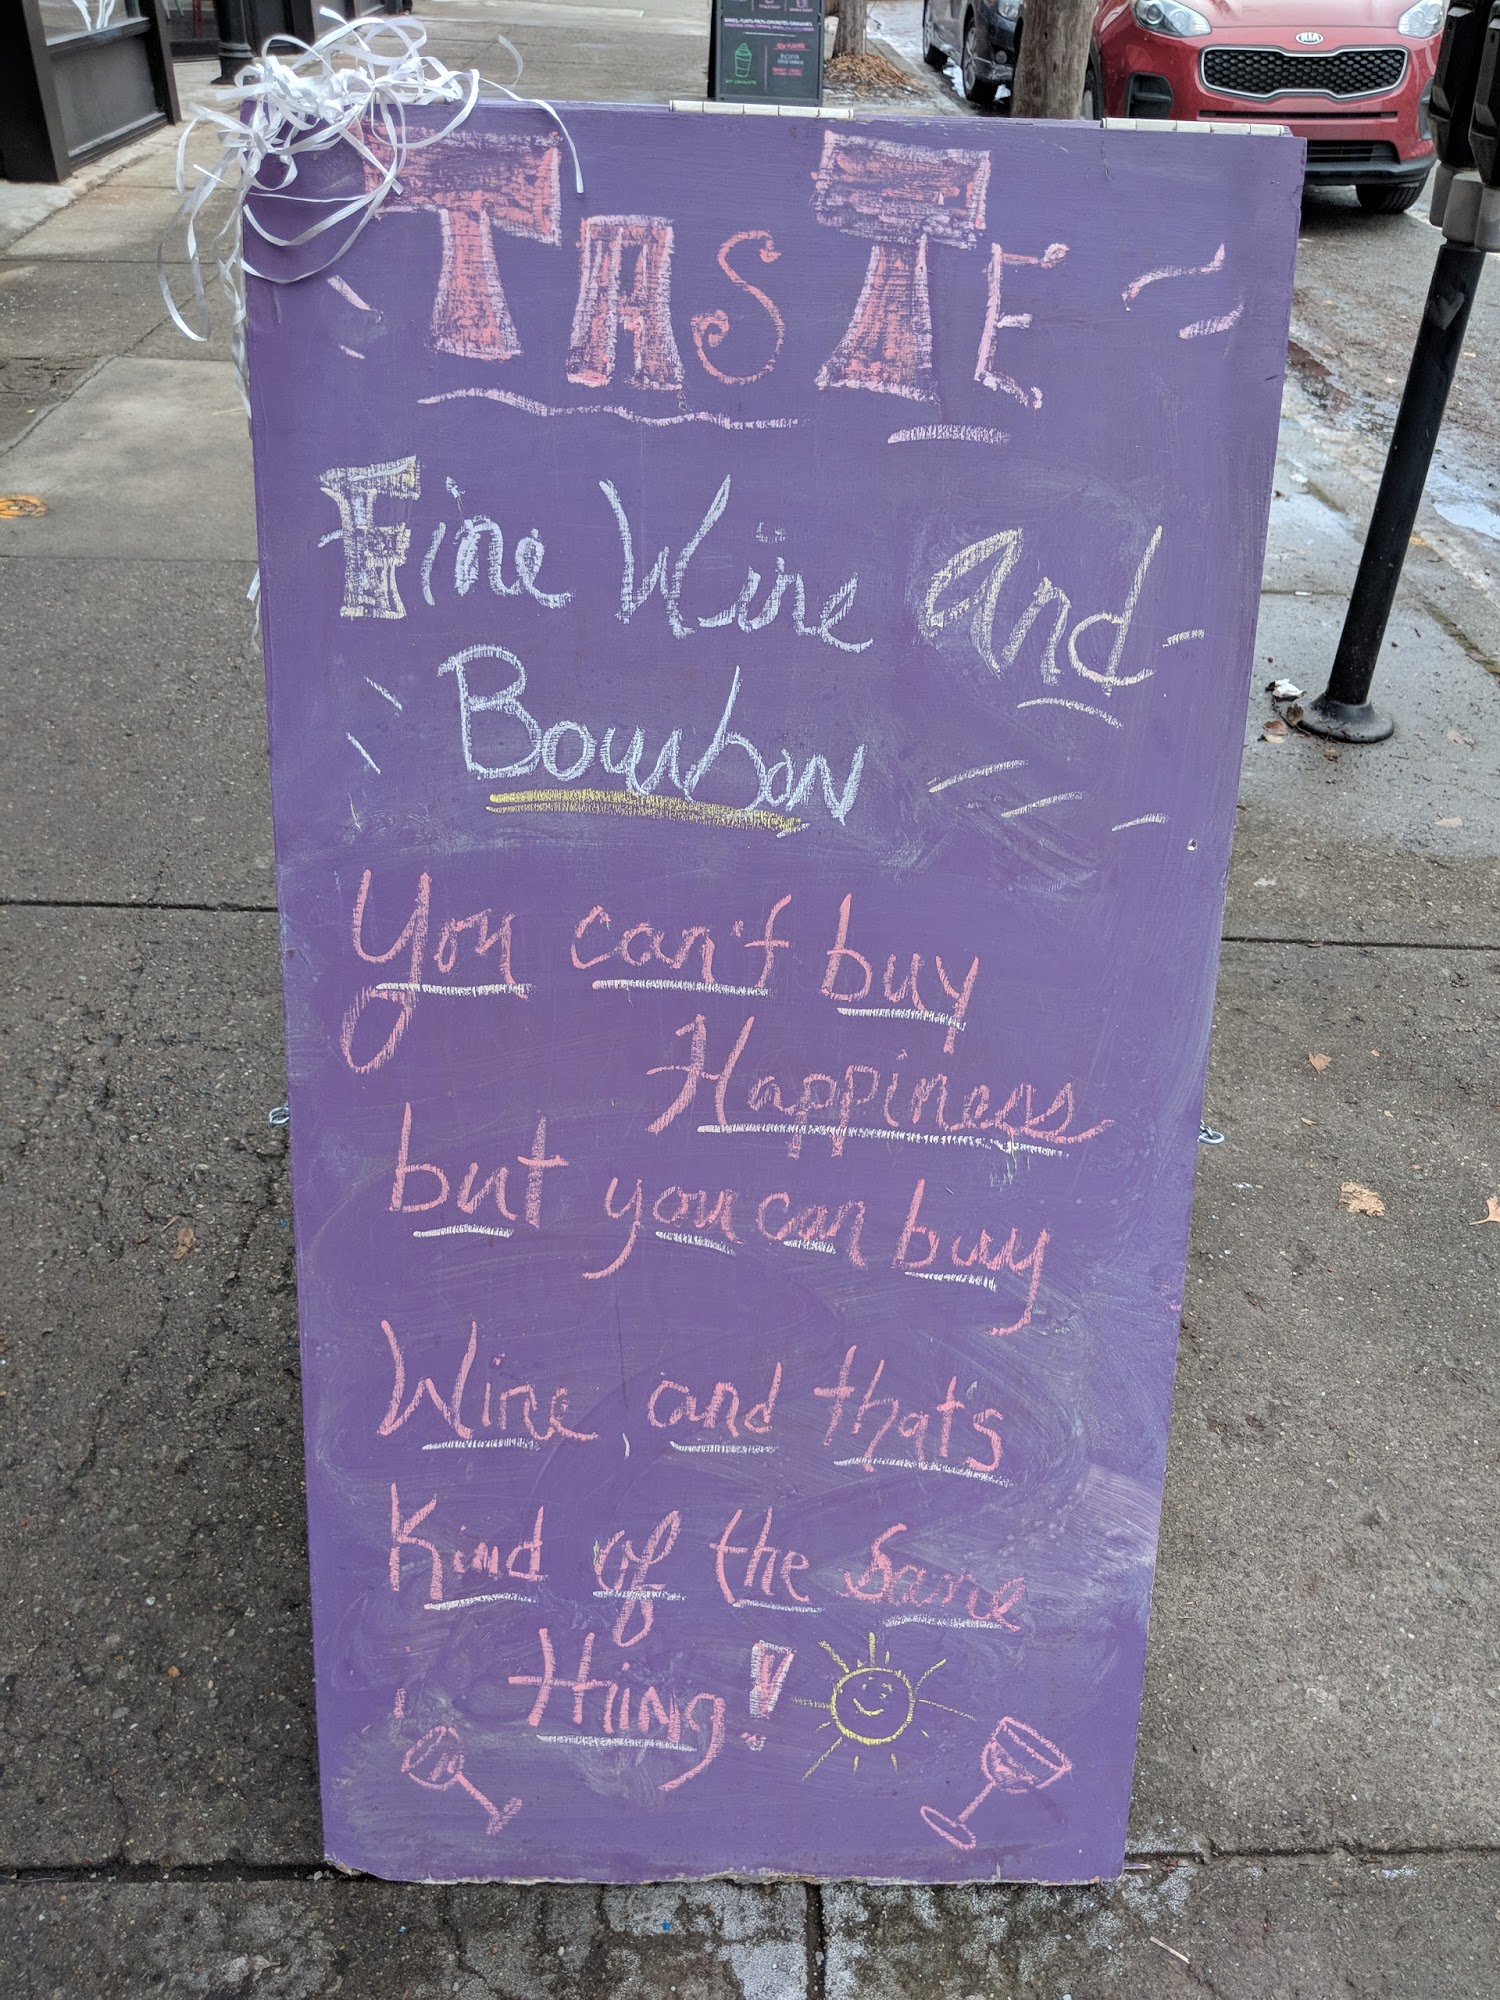 TASTE
Fine Wine and
Bourbon
You can't buy
Happiness
but you can buy
Wine, and that's
Kind of the Same
Thing!
KIA